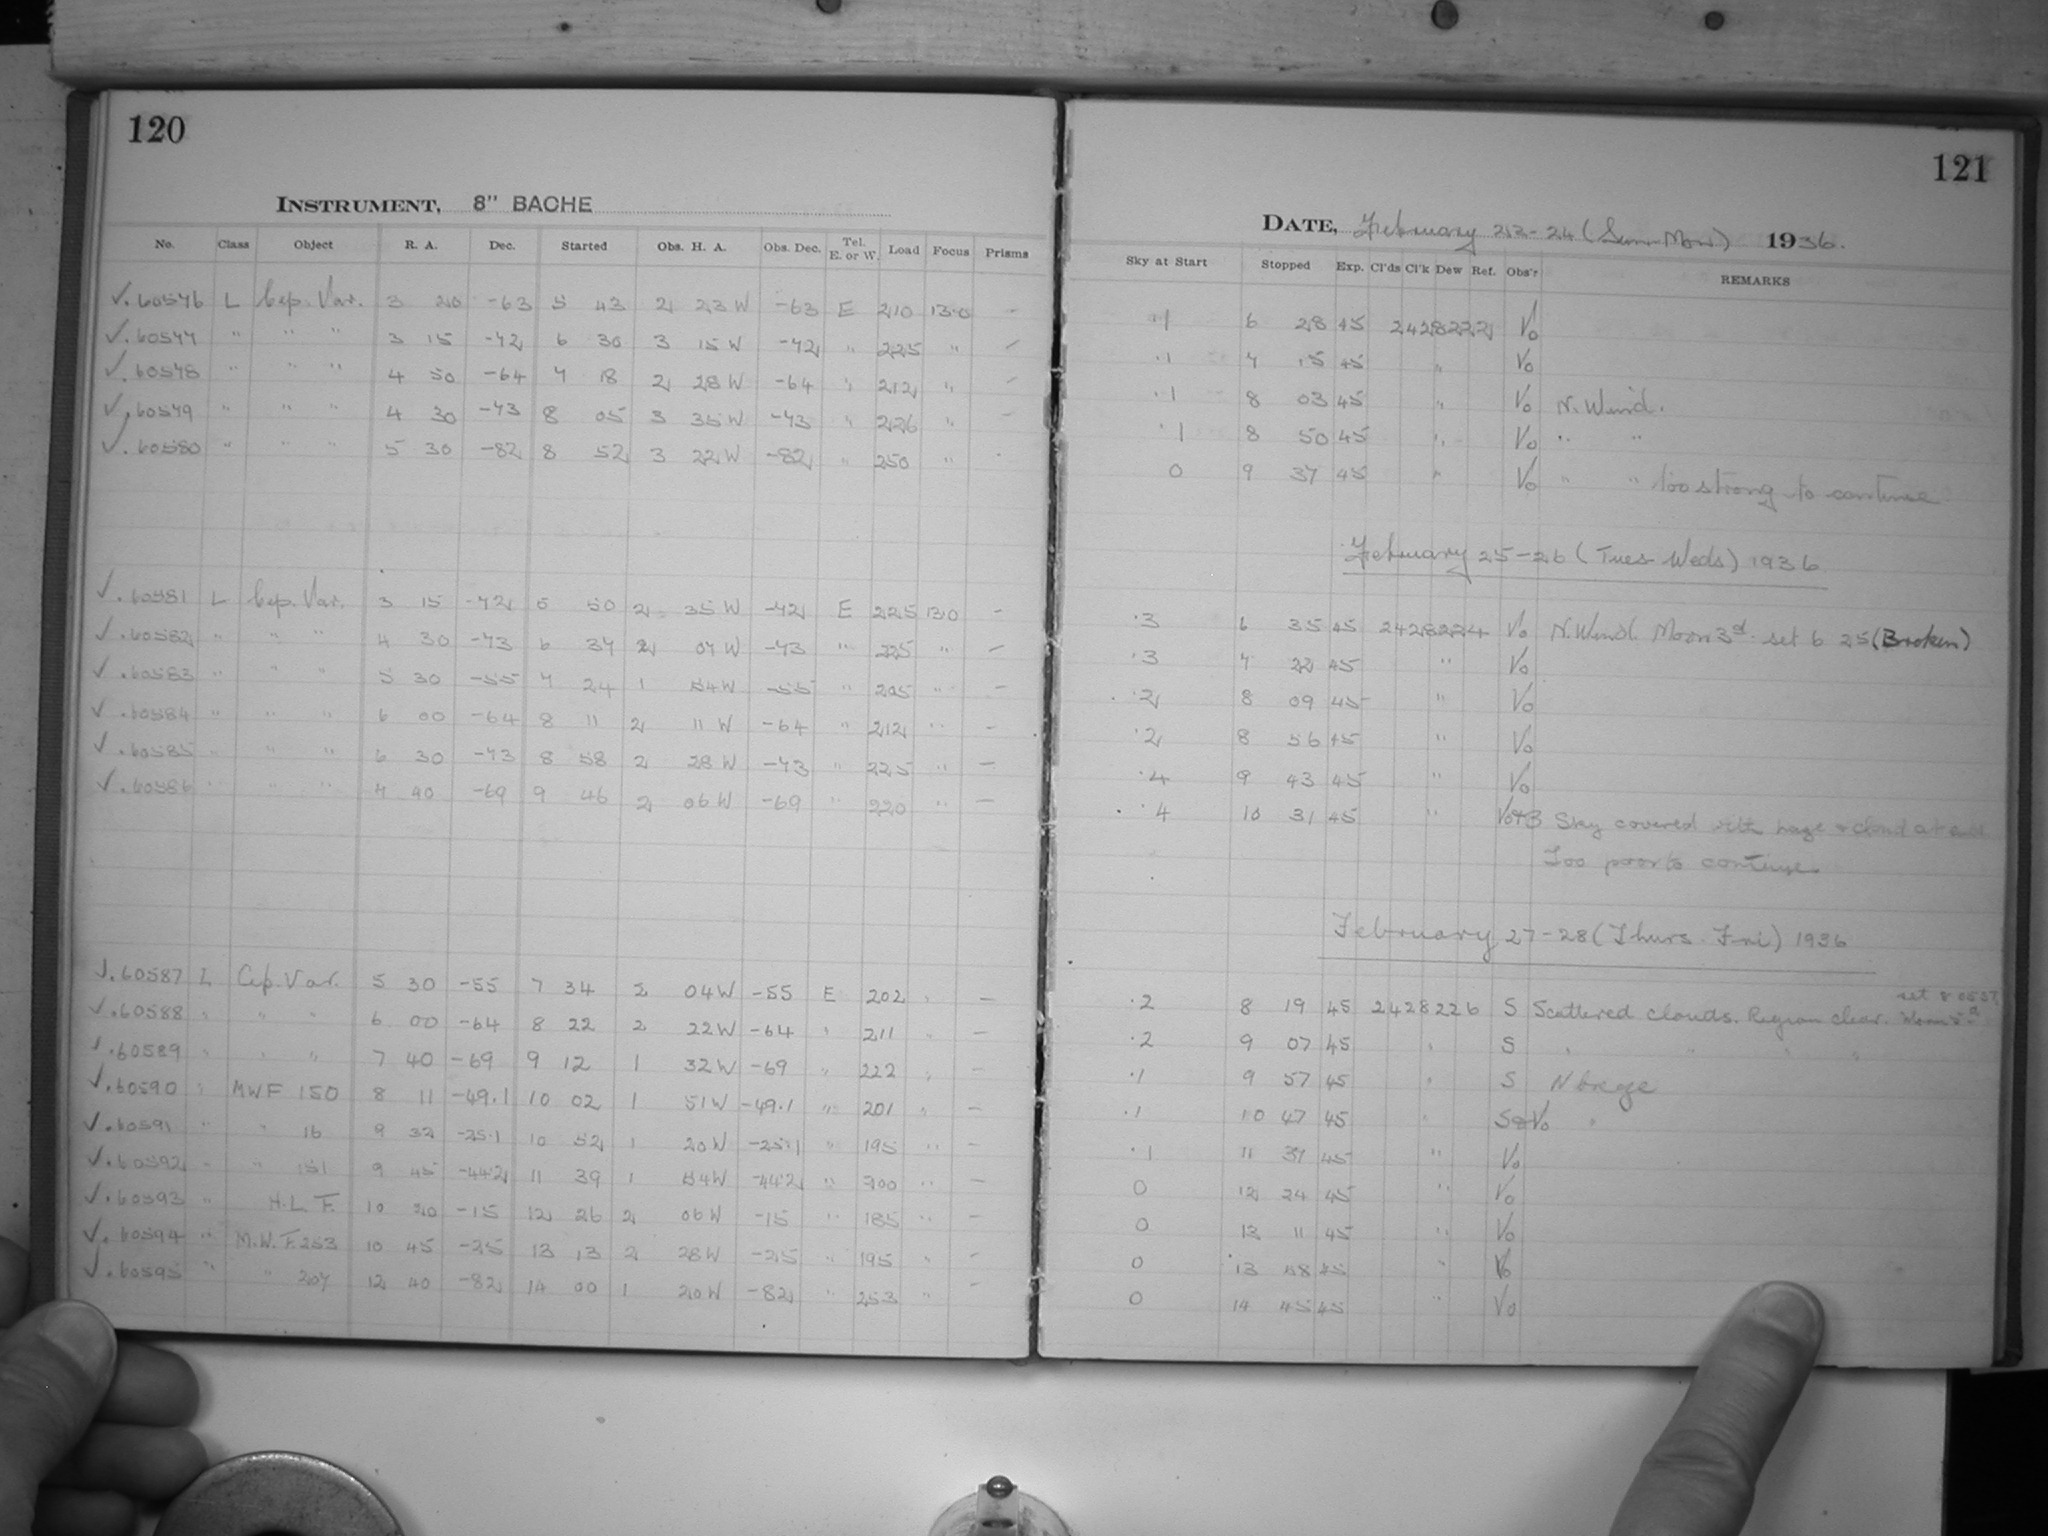 120
INSTRUMENT, 8" BACHE
No. Class Object R. A. Dec. Started Obs. H. A. Obs. Dec. Tel. E. or W. Load Focus Prisms
✓. 60576 L Cep. Var. 3 20 -63 5 43 2 23 W -63 E 210 13.0 -
✓. 60577 " " " 3 15 -42 6 30 3 15 W -42 " 225 " -
✓. 60578 " " " 4 50 -64 7 18 2 28 W -64 " 212 " -
✓. 60579 " " " 4 30 -73 8 05 3 35 W -73 " 226 " -
✓. 60580 " " " 5 30 -82 8 52 3 22 W -82 " 250 " -
✓. 60581 L Cep. Var. 3 15 -42 5 50 2 35 W -42 E 225 13.0 -
✓. 60582 " " " 4 30 -73 6 37 2 07 W -73 " 225 " -
✓. 60583 " " " 5 30 -55 7 24 1 54 W -55 " 205 " -
✓. 60584 " " " 6 00 -64 8 11 2 11 W -64 " 212 " -
✓. 60585 " " " 6 30 -73 8 58 2 28 W -73 " 225 " -
✓. 60586 " " " 7 40 -69 9 46 2 06 W -69 " 220 " -
✓. 60587 L Cep. Var. 5 30 -55 7 34 2 04 W -55 E 202 " -
✓. 60588 " " " 6 00 -64 8 22 2 22 W -64 " 211 " -
✓. 60589 " " " 7 40 -69 9 12 1 32 W -69 " 222 " -
✓. 60590 " MWF 150 8 11 -49.1 10 02 1 51 W -49.1 " 201 " -
✓. 60591 " " 16 9 32 -25.1 10 52 1 20 W -25.1 " 195 " -
✓. 60592 " " 151 9 45 -44.2 11 39 1 54 W -44.2 " 200 " -
✓. 60593 " H. L. F. 10 20 -15 12 26 2 06 W -15 " 185 " -
✓. 60594 " M.W.F. 253 10 45 -25 13 13 2 28 W -25 " 195 " -
✓. 60595 " " 207 12 40 -82 14 00 1 20 W -82 " 253 " -
121
DATE, February 23-24 (Sun-Mon) 1936.
Sky at Start Stopped Exp. Cl'ds Cl'k Dew Ref. Obs'r REMARKS
.1 6 28 45 2428222 Vo
.1 7 15 45 " Vo
.1 8 03 45 " Vo N. Wind.
.1 8 50 45 " Vo " "
0 9 37 45 " Vo " " too strong to continue.
February 25-26 (Tues-Weds) 1936
.3 6 35 45 2428224 Vo N. Wind. Moon 3d. set 6 25 (Broken)
.3 7 22 45 " Vo
.2 8 09 45 " Vo
.2 8 56 45 " Vo
.4 9 43 45 " Vo
.4 10 31 45 " Vo+B Sky covered with haze & cloud at end.
Too poor to continue.
February 27-28 (Thurs. Fri) 1936
.2 8 19 45 2428226 S Scattered clouds. Region clear. Moon
.2 9 07 45 " S " " " "
.1 9 57 45 " S N breeze
.1 10 47 45 " S&Vo "
.1 11 37 45 " Vo
0 12 24 45 " Vo
0 13 11 45 " Vo
0 13 58 45 " Vo
0 14 45 45 " Vo